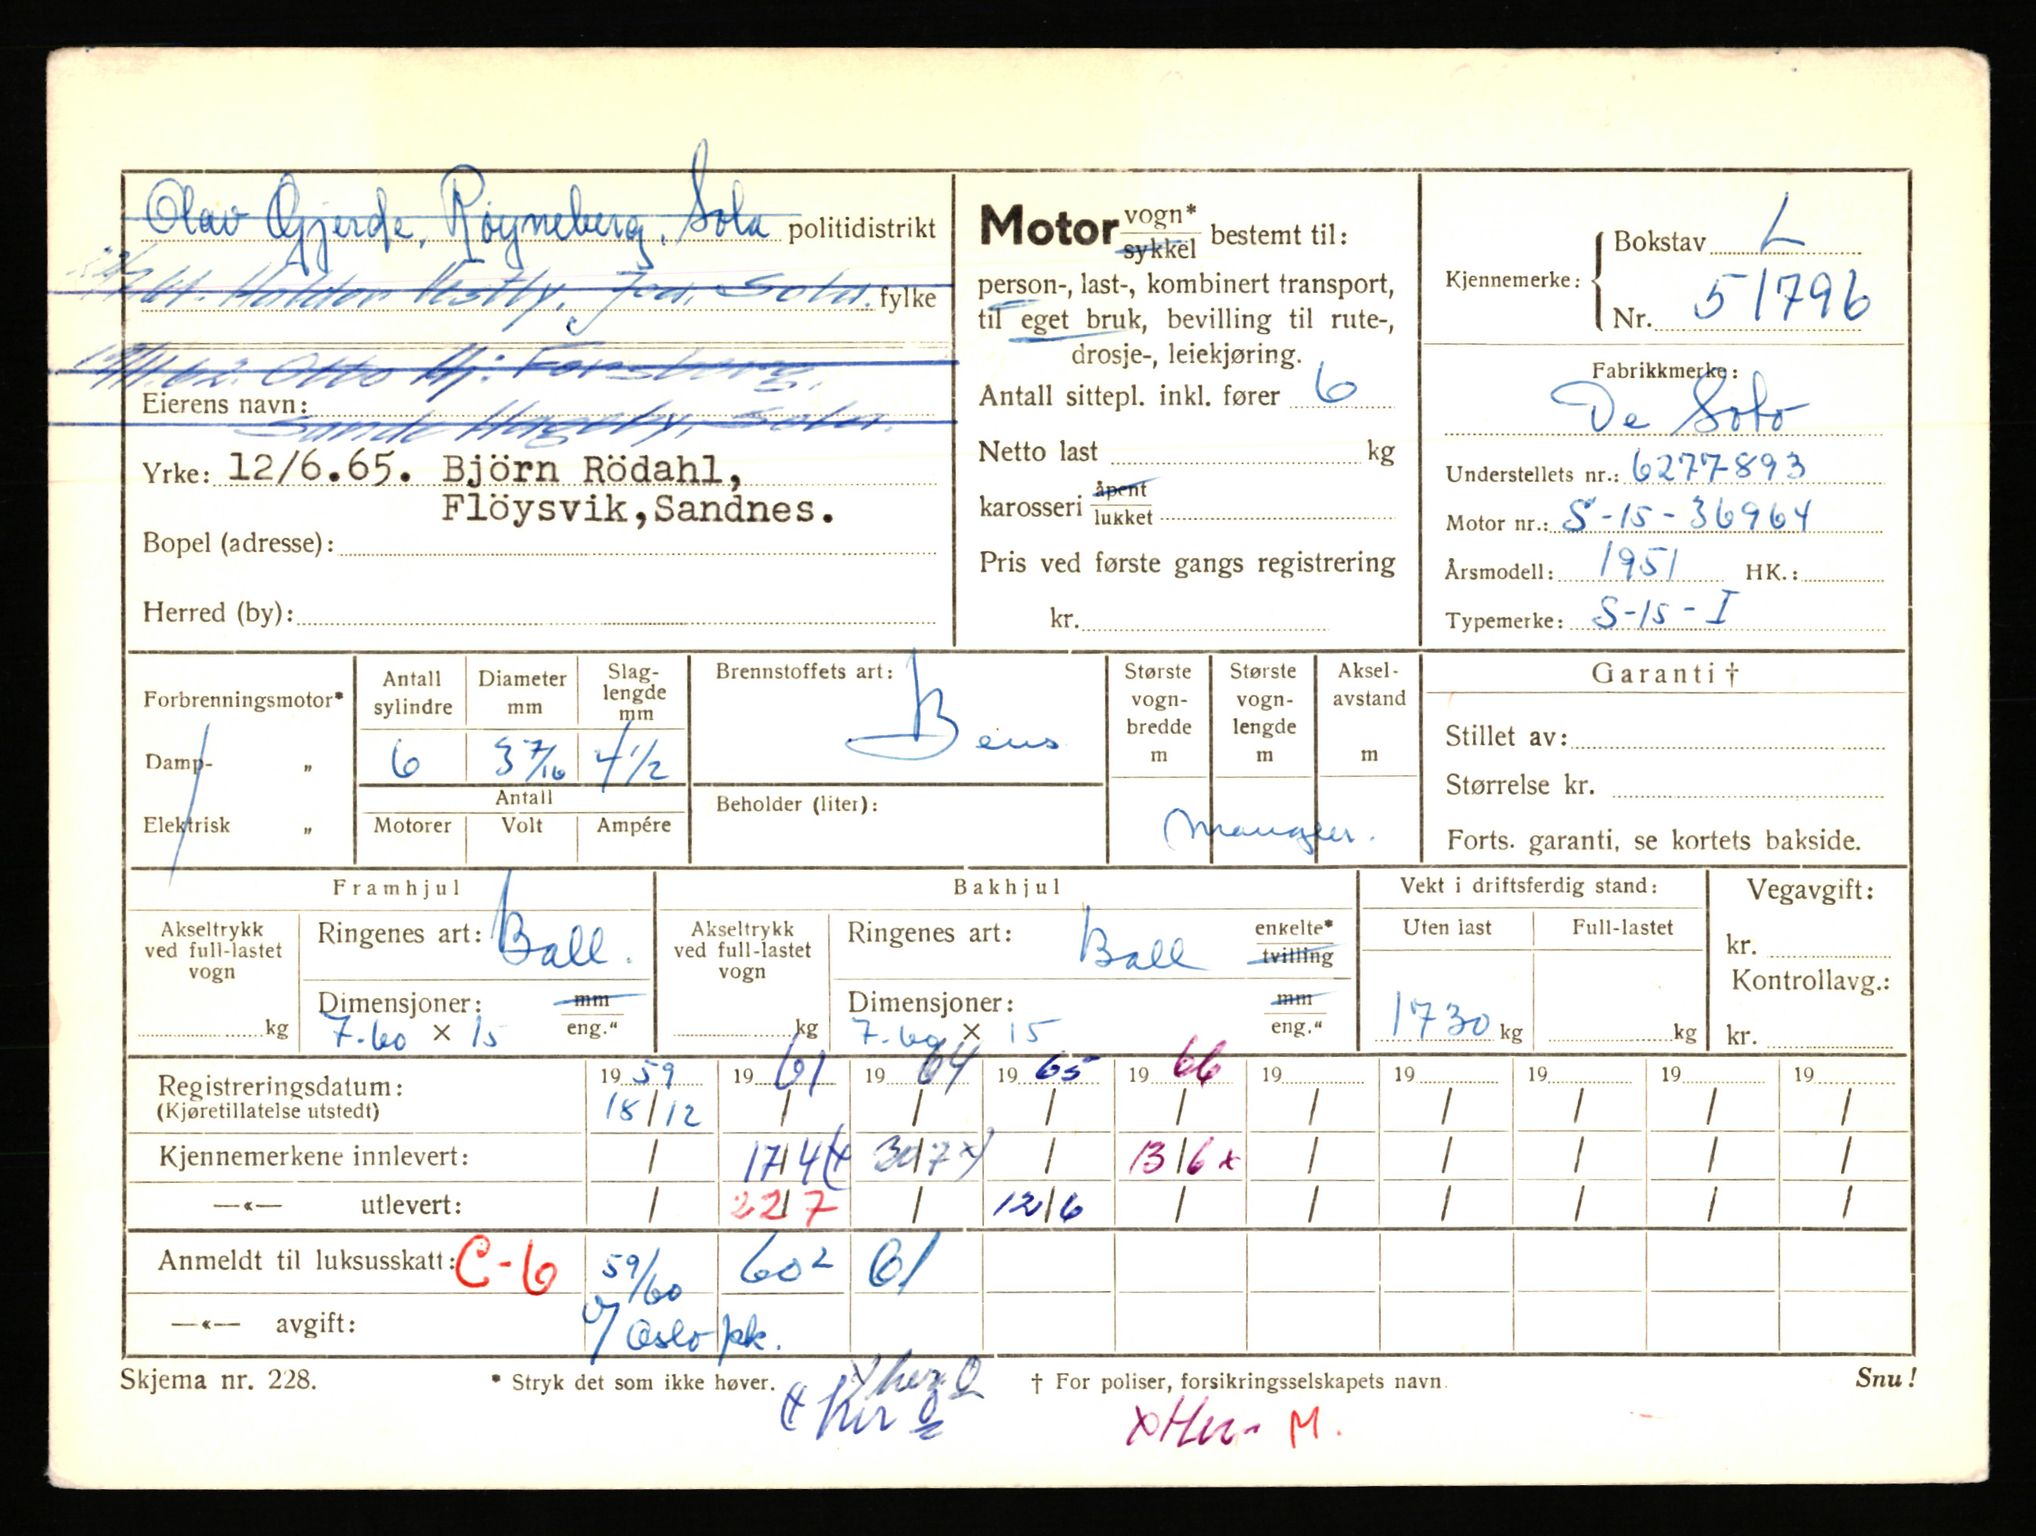 Olav Gjerde, Röyneberg, Sola politidistrikt
Haldor Vestly, Joa, Sola. fylke
12/1.62. Otto Hj. Forsberg,
Eierens navn:
Sande Hageby, Sola.
Yrke: 12/6.65. Björn Rödahl,
Flöysvik,Sandnes.
Bopel (adresse):
Herred (by):
Motor vogn* sykkel bestemt til:
person-, last-, kombinert transport,
til eget bruk, bevilling til rute-,
drosje-, leiekjøring.
Antall sittepl. inkl. fører 6
Netto last kg
karosseri åpent lukket
Pris ved første gangs registrering
kr.
Kjennemerke: { Bokstav L
Nr. 51796
Fabrikkmerke:
De Soto
Understellets nr.: 6277893
Motor nr.: S-15-36964
Årsmodell: 1951 HK.:
Typemerke: S-15-I
Forbrenningsmotor*
Damp- „
Elektrisk „
Antall sylindre
Diameter mm
Slag-lengde mm
6 3 7/16 4 1/2
Antall
Motorer Volt Ampére
Brennstoffets art:
Bens
Beholder (liter):
Største vogn-bredde m
Største vogn-lengde m
Aksel-avstand m
Mangler.
Garanti †
Stillet av:
Størrelse kr.
Forts. garanti, se kortets bakside.
Framhjul
Akseltrykk ved full-lastet vogn
kg
Ringenes art: Ball.
Dimensjoner: mm
7.60 × 15 eng."
Bakhjul
Akseltrykk ved full-lastet vogn
kg
Ringenes art: Ball enkelte* tvilling
Dimensjoner: mm
7.60 × 15 eng."
Vekt i driftsferdig stand:
Uten last Full-lastet
1730 kg kg
Vegavgift:
kr.
Kontrollavg.:
kr.
Registreringsdatum: 19 59 19 61 19 64 19 65 19 66 19 19 19 19 19
(Kjøretillatelse utstedt) 18/12 / / / / / / / / /
Kjennemerkene innlevert: / 17/4 (x 30/7 x) / 13/6 x / / / / /
—«— utlevert: / 22/7 / 12/6 / / / / / /
Anmeldt til luksusskatt: C-6 59/60 60² 61
—«— avgift: Oslo pk.
Skjema nr. 228. * Stryk det som ikke høver. † For poliser, forsikringsselskapets navn. Snu!
M.